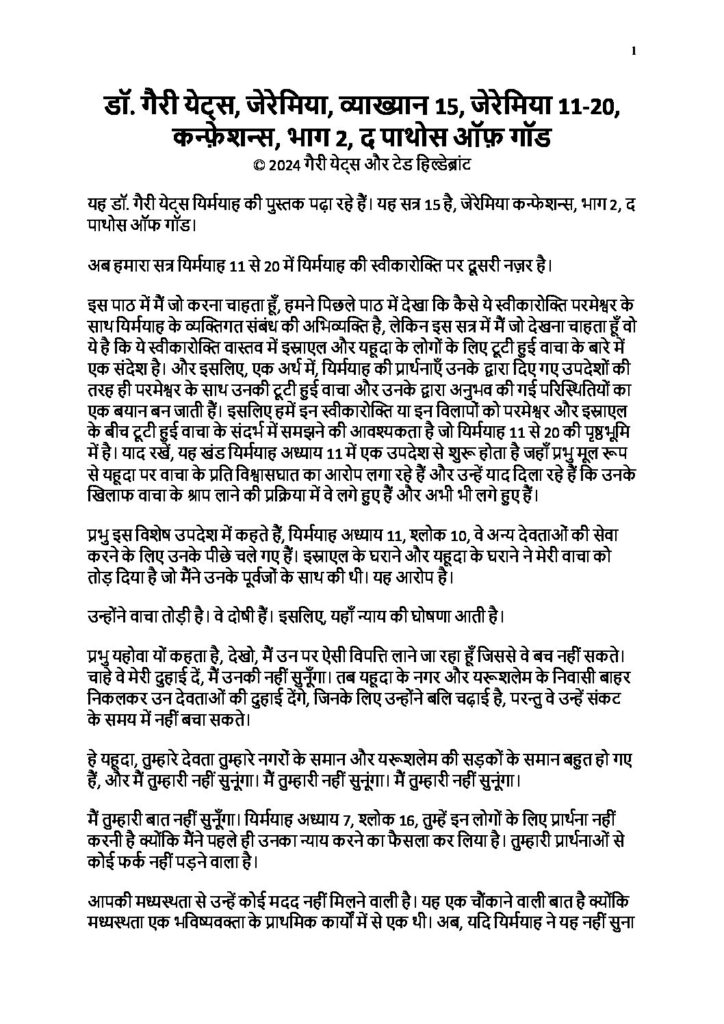 1
डॉ. गैरी येट्स, जेरेमिया, व्याख्यान 15, जेरेमिया 11-20,
कन्फ़ेशन्स, भाग 2, द पाथोस ऑफ़ गॉड
© 2024 गैरी येट्स और टेड हिल्डेब्रांट
यह डॉ. गैरी येट्स यिर्मयाह की पुस्तक पढ़ा रहे हैं। यह सत्र 15 है, जेरेमिया कन्फेशन्स, भाग 2, द
पाथोस ऑफ गॉड।
अब हमारा सत्र यिर्मयाह 11 से 20 में यिर्मयाह की स्वीकारोक्ति पर दूसरी नज़र है।
इस पाठ में मैं जो करना चाहता हूँ, हमने पिछले पाठ में देखा कि कैसे ये स्वीकारोक्ति परमेश्वर के
साथ यिर्मयाह के व्यक्तिगत संबंध की अभिव्यक्ति है, लेकिन इस सत्र में मैं जो देखना चाहता हूँ वो
ये है कि ये स्वीकारोक्ति वास्तव में इस्राएल और यहूदा के लोगों के लिए टूटी हुई वाचा के बारे में
एक संदेश है। और इसलिए, एक अर्थ में, यिर्मयाह की प्रार्थनाएँ उनके द्वारा दिए गए उपदेशों की
तरह ही परमेश्वर के साथ उनकी टूटी हुई वाचा और उनके द्वारा अनुभव की गई परिस्थितियों का
एक बयान बन जाती हैं। इसलिए हमें इन स्वीकारोक्ति या इन विलापों को परमेश्वर और इस्राएल
के बीच टूटी हुई वाचा के संदर्भ में समझने की आवश्यकता है जो यिर्मयाह 11 से 20 की पृष्ठभूमि
में है। याद रखें, यह खंड यिर्मयाह अध्याय 11 में एक उपदेश से शुरू होता है जहाँ प्रभु मूल रूप
से यहूदा पर वाचा के प्रति विश्वासघात का आरोप लगा रहे हैं और उन्हें याद दिला रहे हैं कि उनके
खिलाफ वाचा के श्राप लाने की प्रक्रिया में वे लगे हुए हैं और अभी भी लगे हुए हैं।
प्रभु इस विशेष उपदेश में कहते हैं, यिर्मयाह अध्याय 11, श्लोक 10, वे अन्य देवताओं की सेवा
करने के लिए उनके पीछे चले गए हैं। इस्राएल के घराने और यहूदा के घराने ने मेरी वाचा को
तोड़ दिया है जो मैंने उनके पूर्वजों के साथ की थी। यह आरोप है।
उन्होंने वाचा तोड़ी है। वे दोषी हैं। इसलिए, यहाँ न्याय की घोषणा आती है।
प्रभु यहोवा यों कहता है, देखो, मैं उन पर ऐसी विपत्ति लाने जा रहा हूँ जिससे वे बच नहीं सकते।
चाहे वे मेरी दुहाई दें, मैं उनकी नहीं सुनूँगा। तब यहूदा के नगर और यरूशलेम के निवासी बाहर
निकलकर उन देवताओं की दुहाई देंगे, जिनके लिए उन्होंने बलि चढ़ाई है, परन्तु वे उन्हें संकट
के समय में नहीं बचा सकते।
हे यहूदा, तुम्हारे देवता तुम्हारे नगरों के समान और यरूशलेम की सड़कों के समान बहुत हो गए
हैं, और मैं तुम्हारी नहीं सुनूंगा। मैं तुम्हारी नहीं सुनूंगा। मैं तुम्हारी नहीं सुनूंगा।
मैं तुम्हारी बात नहीं सुनूँगा। यिर्मयाह अध्याय 7, श्लोक 16, तुम्हें इन लोगों के लिए प्रार्थना नहीं
करनी है क्योंकि मैंने पहले ही उनका न्याय करने का फैसला कर लिया है। तुम्हारी प्रार्थनाओं से
कोई फर्क नहीं पड़ने वाला है।
आपकी मध्यस्थता से उन्हें कोई मदद नहीं मिलने वाली है। यह एक चौंकाने वाली बात है क्योंकि
मध्यस्थता एक भविष्यवक्ता के प्राथमिक कार्यों में से एक थी। अब, यदि यिर्मयाह ने यह नहीं सुना